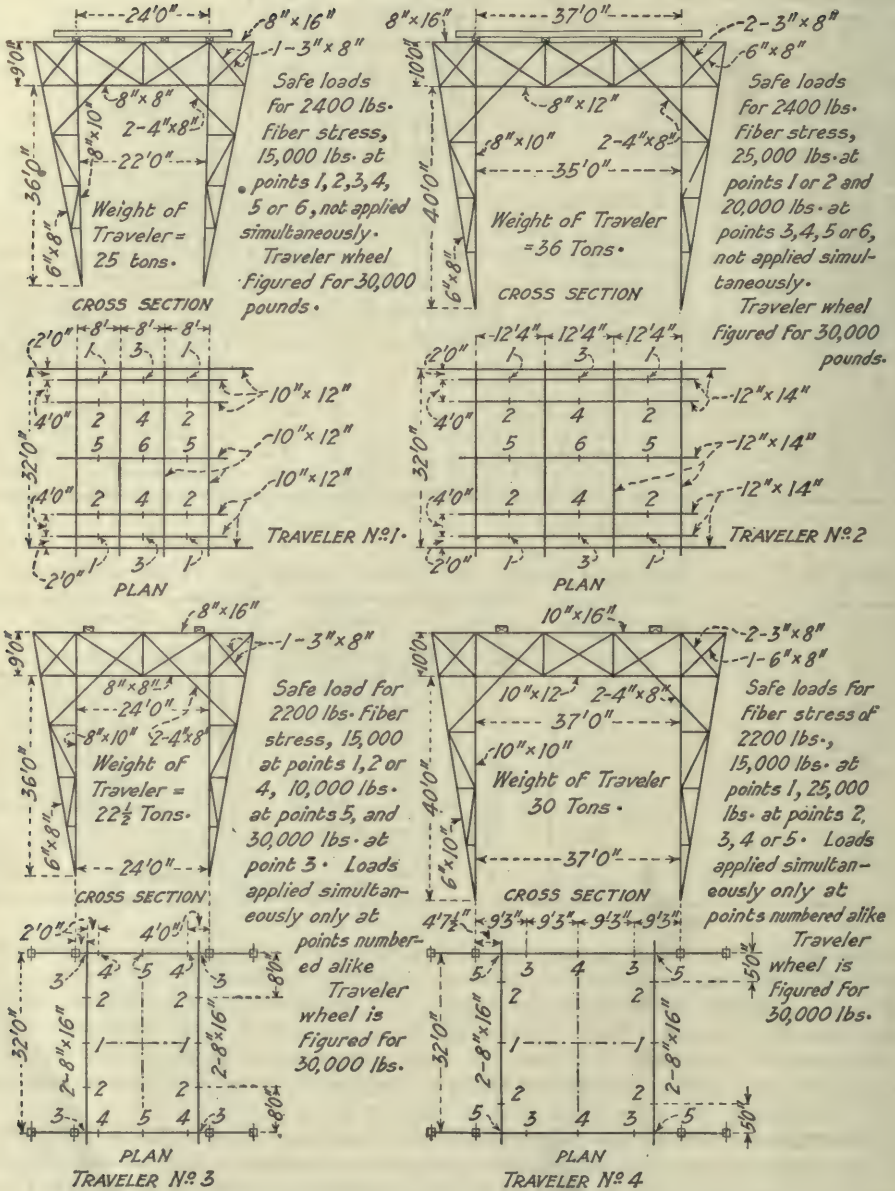 24'0"
8"×16"
1-3"×8"
9'0"
8"×8"
8"×10"
2-4"×8"
22'0"
36'0"
6"×8"
Weight of
Traveler =
25 tons.
CROSS SECTION
Safe loads
for 2400 lbs.
fiber stress,
15,000 lbs. at
points 1, 2, 3, 4,
5 or 6, not applied
simultaneously.
Traveler wheel
figured for 30,000
pounds.
8' 8' 8'
2'0" 1 3 1
10"×12"
4'0" 2 4 2
32'0" 5 6 5
10"×12"
10"×12"
4'0" 2 4 2
2'0" 1 3 1
TRAVELER Nº 1.
PLAN
37'0"
8"×16"
2-3"×8"
6"×8"
10'0"
8"×12"
8"×10"
2-4"×8"
35'0"
40'0"
6"×8"
Weight of Traveler
= 36 Tons.
CROSS SECTION
Safe loads
for 2400 lbs.
fiber stress,
25,000 lbs. at
points 1 or 2 and
20,000 lbs. at
points 3, 4, 5 or 6,
not applied simul-
taneously.
Traveler wheel
figured for 30,000
pounds.
12'4" 12'4" 12'4"
2'0" 1 3 1
12"×14"
4'0" 2 4 2
32'0" 5 6 5
12"×14"
12"×14"
4'0" 2 4 2
2'0" 1 3 1
TRAVELER Nº 2
PLAN
8"×16"
1-3"×8"
9'0"
8"×8"
24'0"
8"×10" 2-4"×8"
36'0"
6"×8"
Weight of
Traveler =
22½ Tons.
24'0"
CROSS SECTION
Safe load for
2200 lbs. fiber
stress, 15,000
at points 1, 2 or
4, 10,000 lbs.
at points 5, and
30,000 lbs. at
point 3. Loads
applied simultan-
eously only at
points number-
ed alike
Traveler
wheel is
figured for
30,000 lbs.
2'0" 4'0"
3 4 5 4 3
8'0"
2 2
32'0"
2-8"×16" 1 1 2-8"×16"
2 2
8'0"
3 4 5 4 3
PLAN
TRAVELER Nº 3
10"×16"
2-3"×8"
1-6"×8"
10'0"
10"×12 2-4"×8"
37'0"
10"×10"
40'0"
6"×10"
Weight of Traveler
30 Tons.
37'0"
CROSS SECTION
Safe loads for
fiber stress of
2200 lbs.,
15,000 lbs. at
points 1, 25,000
lbs. at points 2,
3, 4 or 5. Loads
applied simultan-
eously only at
points numbered alike
Traveler
wheel is
figured for
30,000 lbs.
4'7½" 9'3" 9'3" 9'3" 9'3"
3 4 3 5
5'0"
2 2
32'0"
2-8"×16" 1 1 2-8"×16"
2 2
5'0"
5 3 4 3 5
PLAN
TRAVELER Nº 4